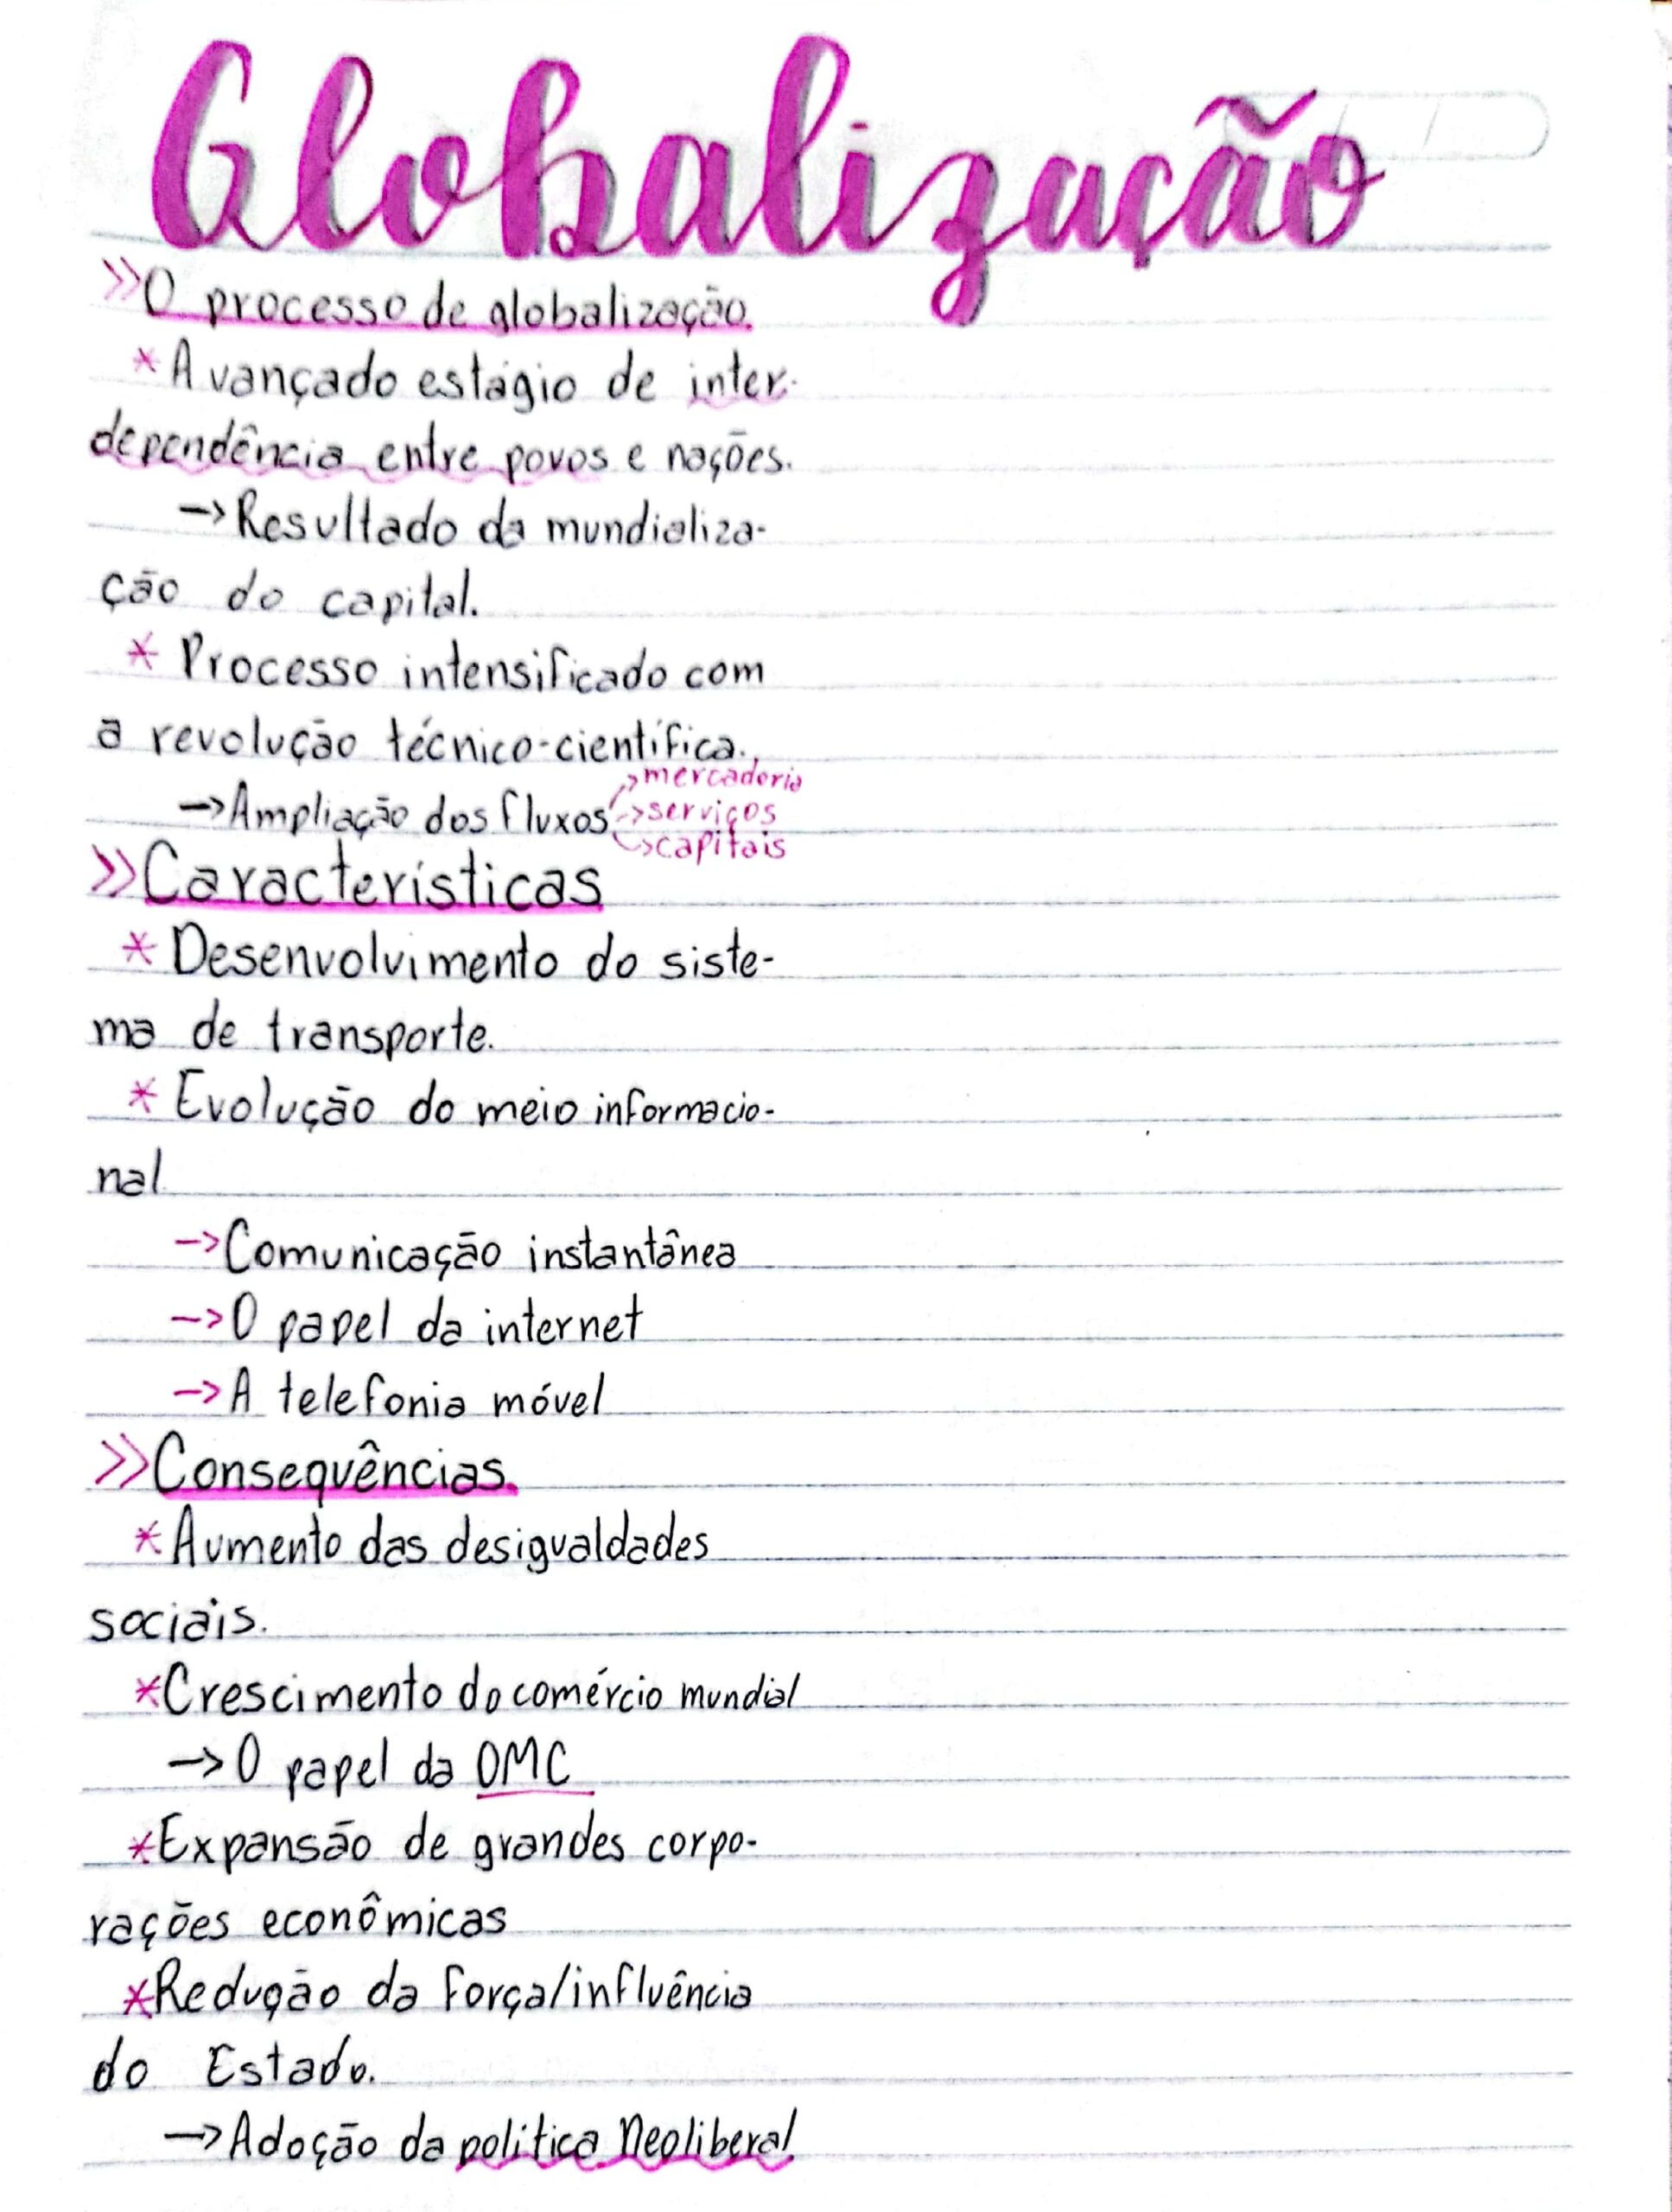 Globalização
»O processo de globalização.
*Avançado estágio de inter-
dependência entre povos e nações.
->Resultado da mundializa-
ção do capital.
* Processo intensificado com
a revolução técnico-científica.
->mercadoria
->Ampliação dos fluxos ->serviços
->capitais
»Características
*Desenvolvimento do siste-
ma de transporte.
*Evolução do meio informacio-
nal
->Comunicação instantânea
->O papel da internet
->A telefonia móvel
»Consequências.
*Aumento das desigualdades
sociais.
*Crescimento do comércio mundial
->O papel da OMC
*Expansão de grandes corpo-
rações econômicas
*Redução da força/influência
do Estado.
->Adoção da política Neoliberal